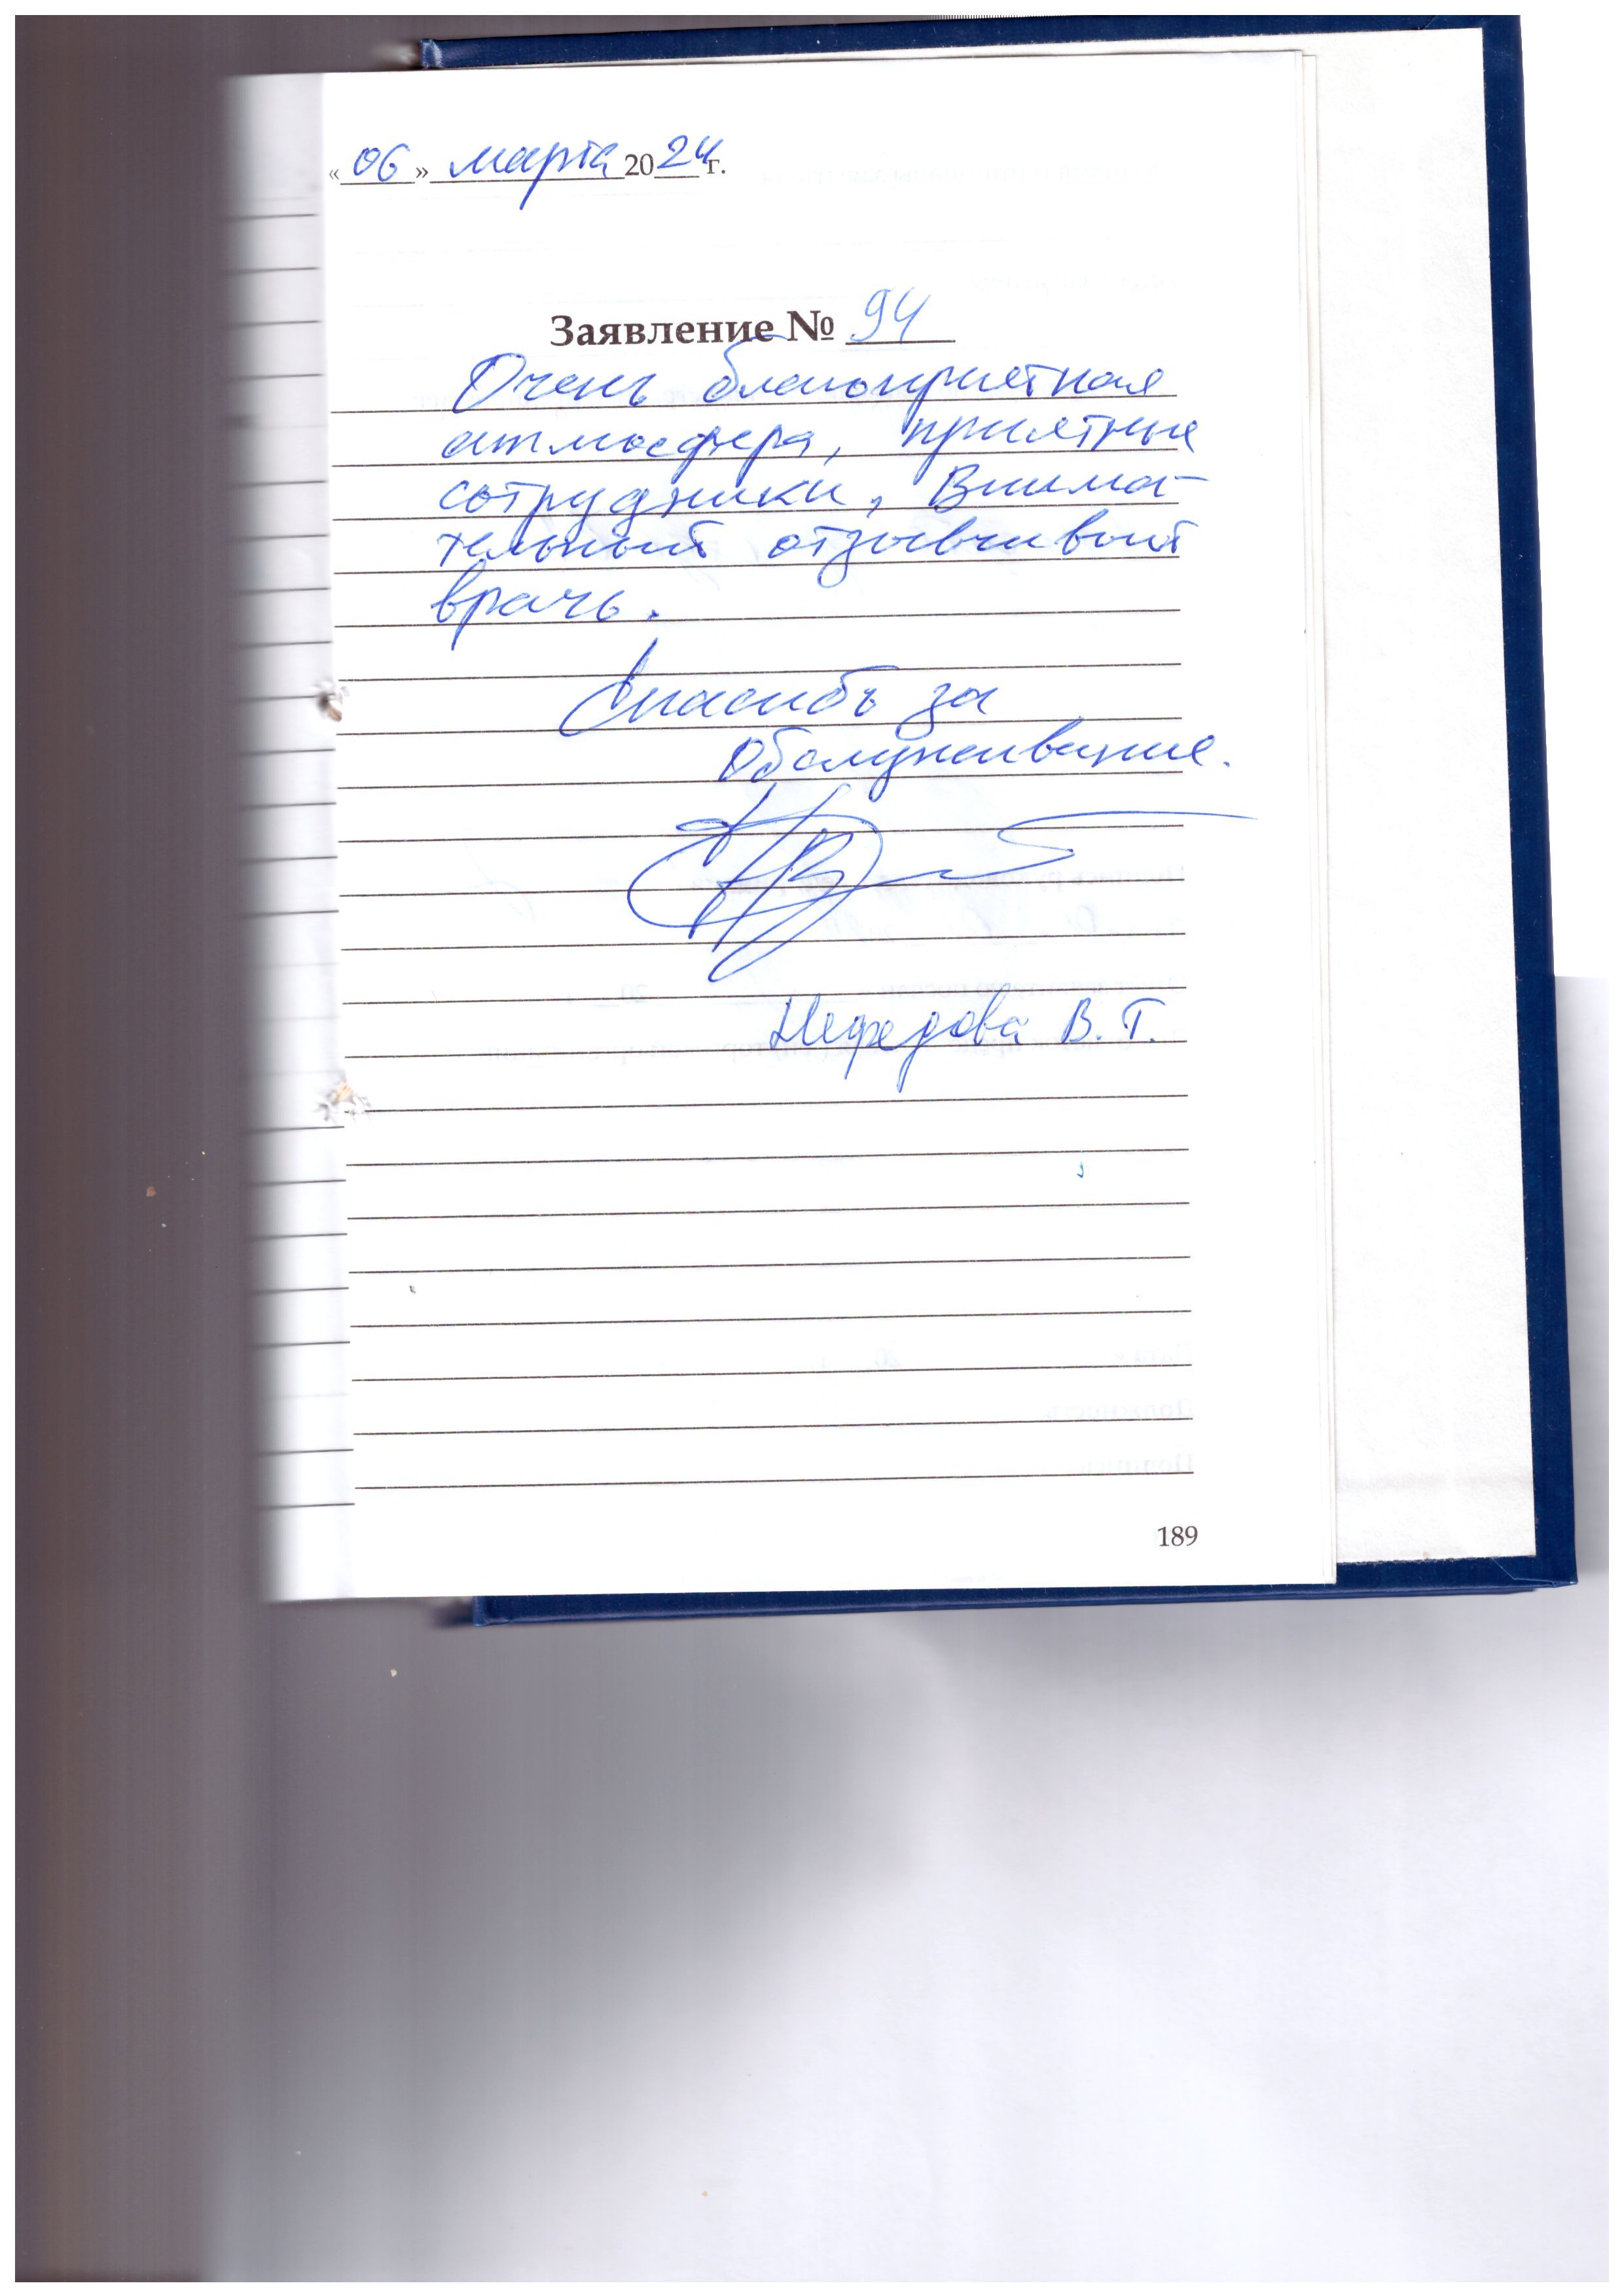 «06» марта 2024 г.
Заявление № 94
Очень благоприятная
атмосфера, приятные
сотрудники, Внима-
тельный отзывчивый
врачь.
Спасибо за
обслуживание.
Нефедова В. Г.
189